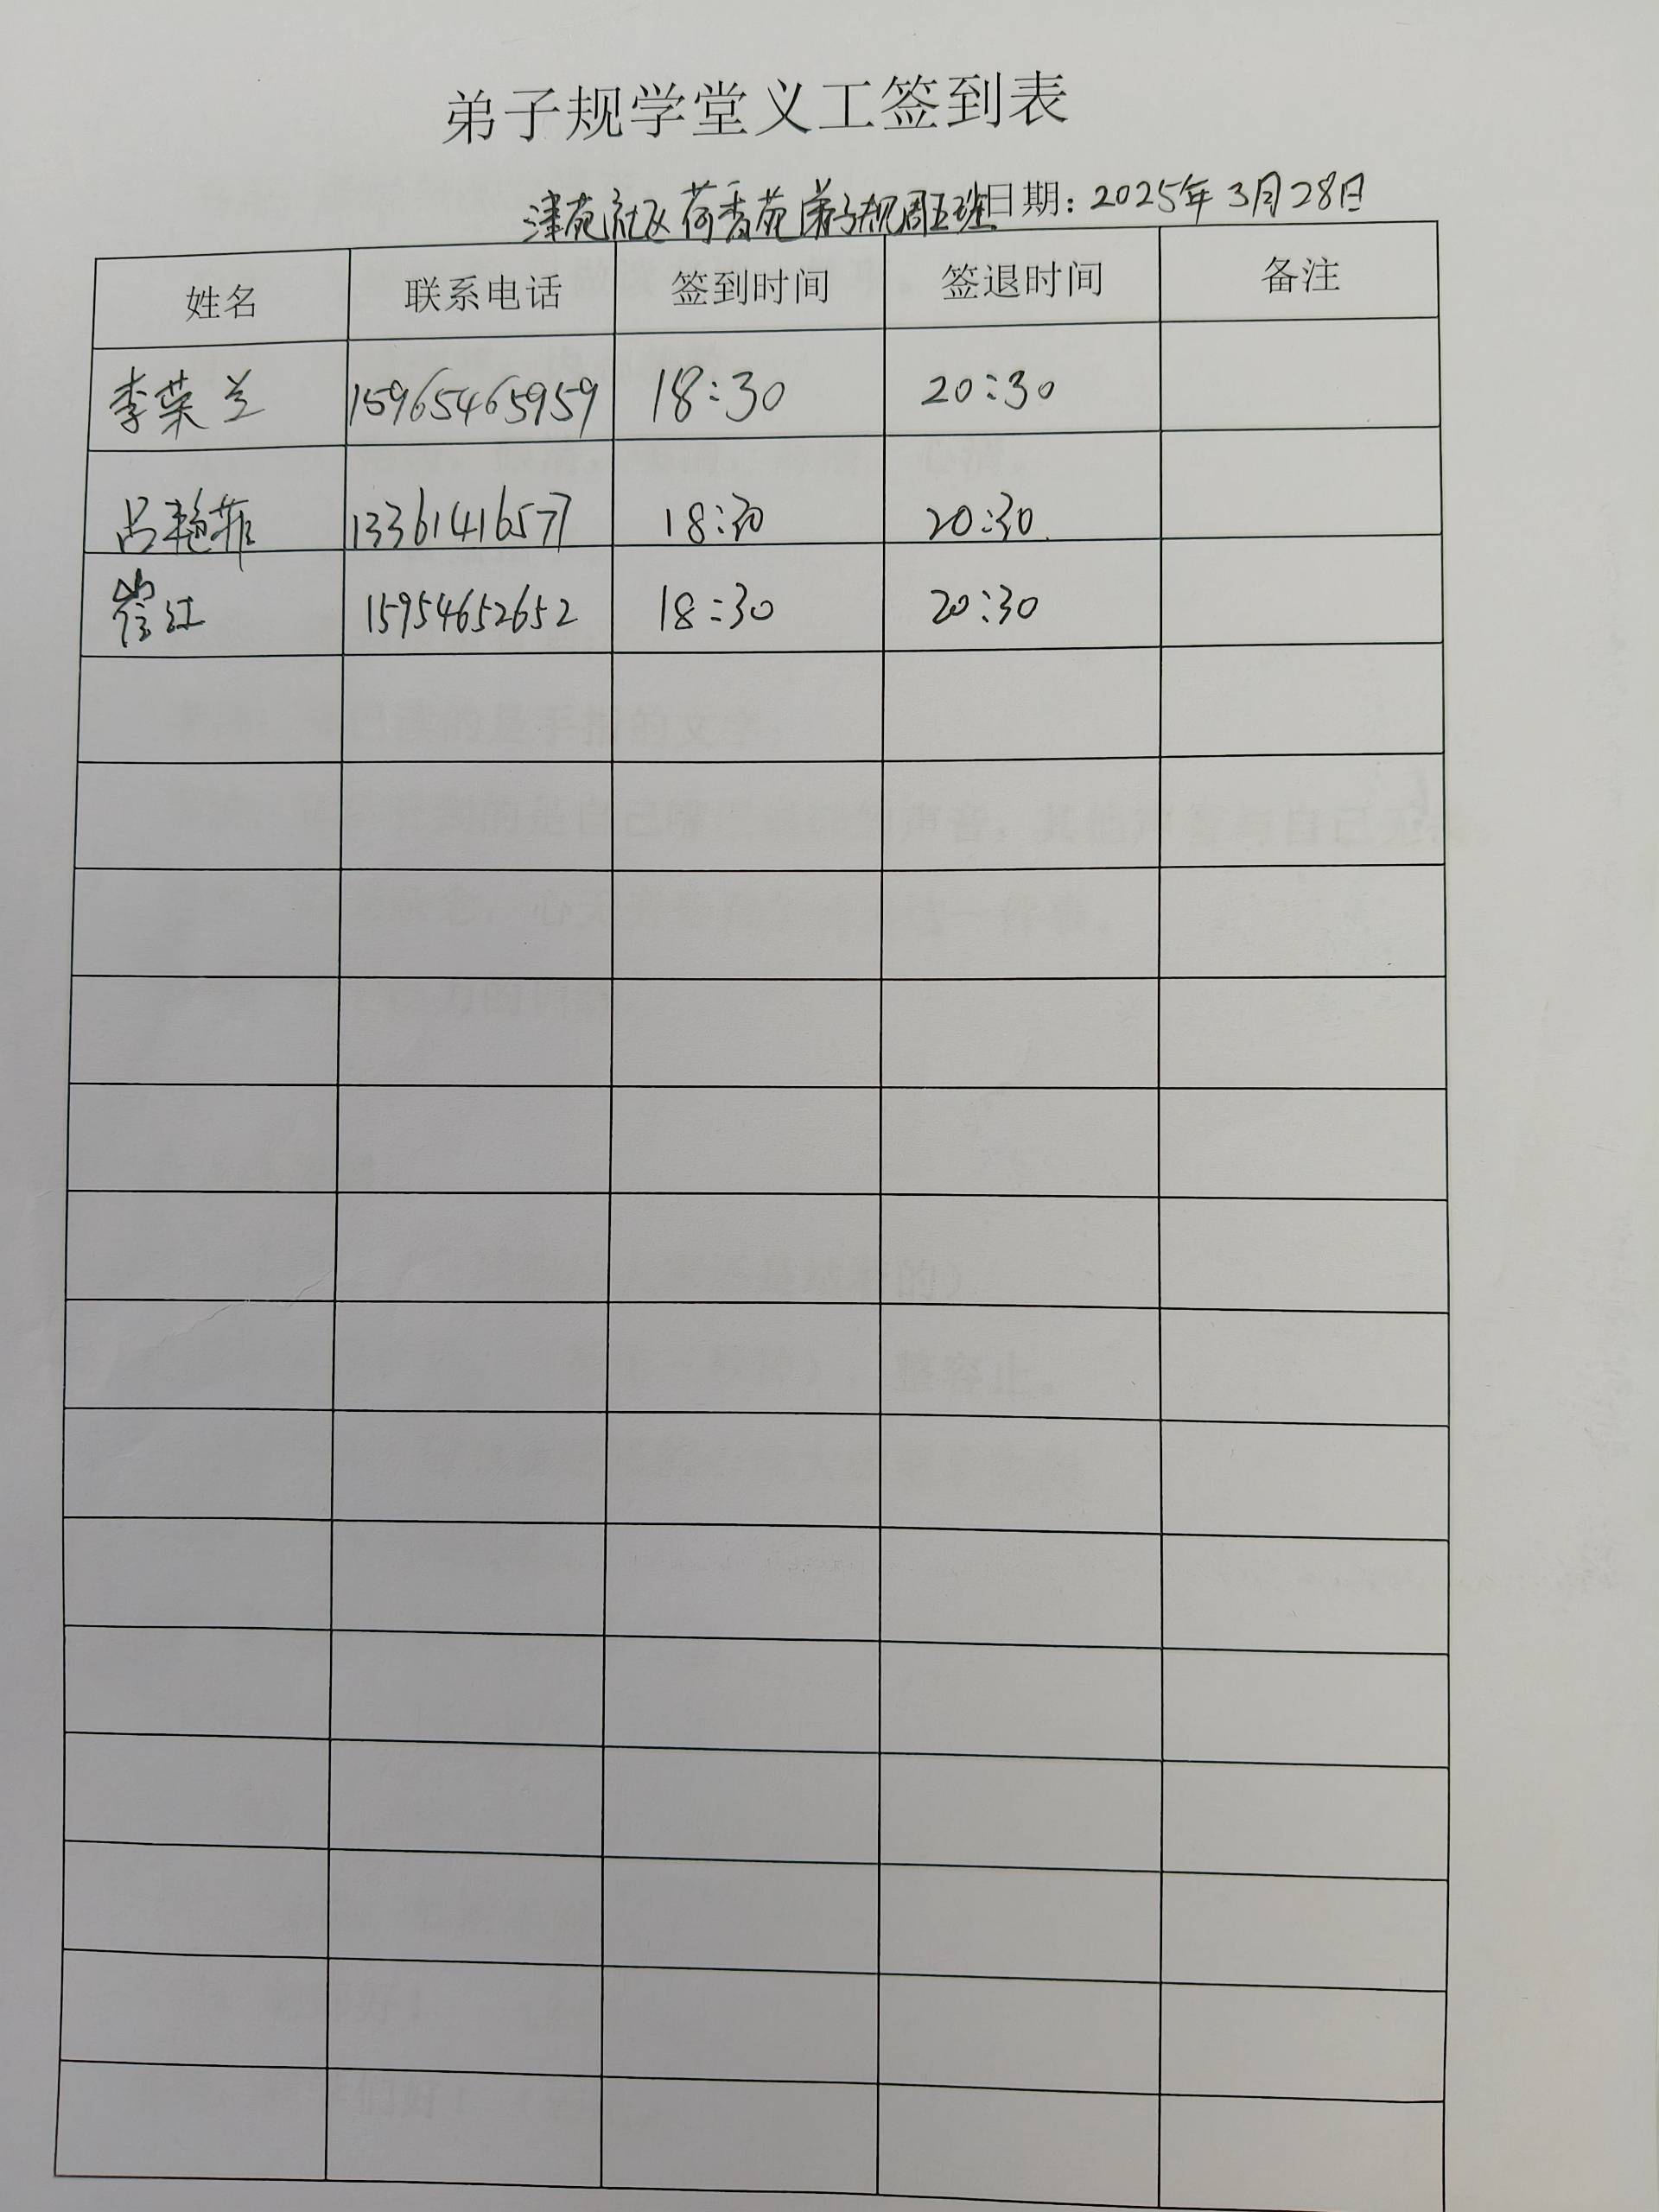 弟子规学堂义工签到表
津苑社区荷香苑弟子规周五班日期：2025年3月28日
姓名 联系电话 签到时间 签退时间 备注
李荣兰 15965465959 18:30 20:30
吕艳菲 13361416577 18:30 20:30
崔红 15954652652 18:30 20:30